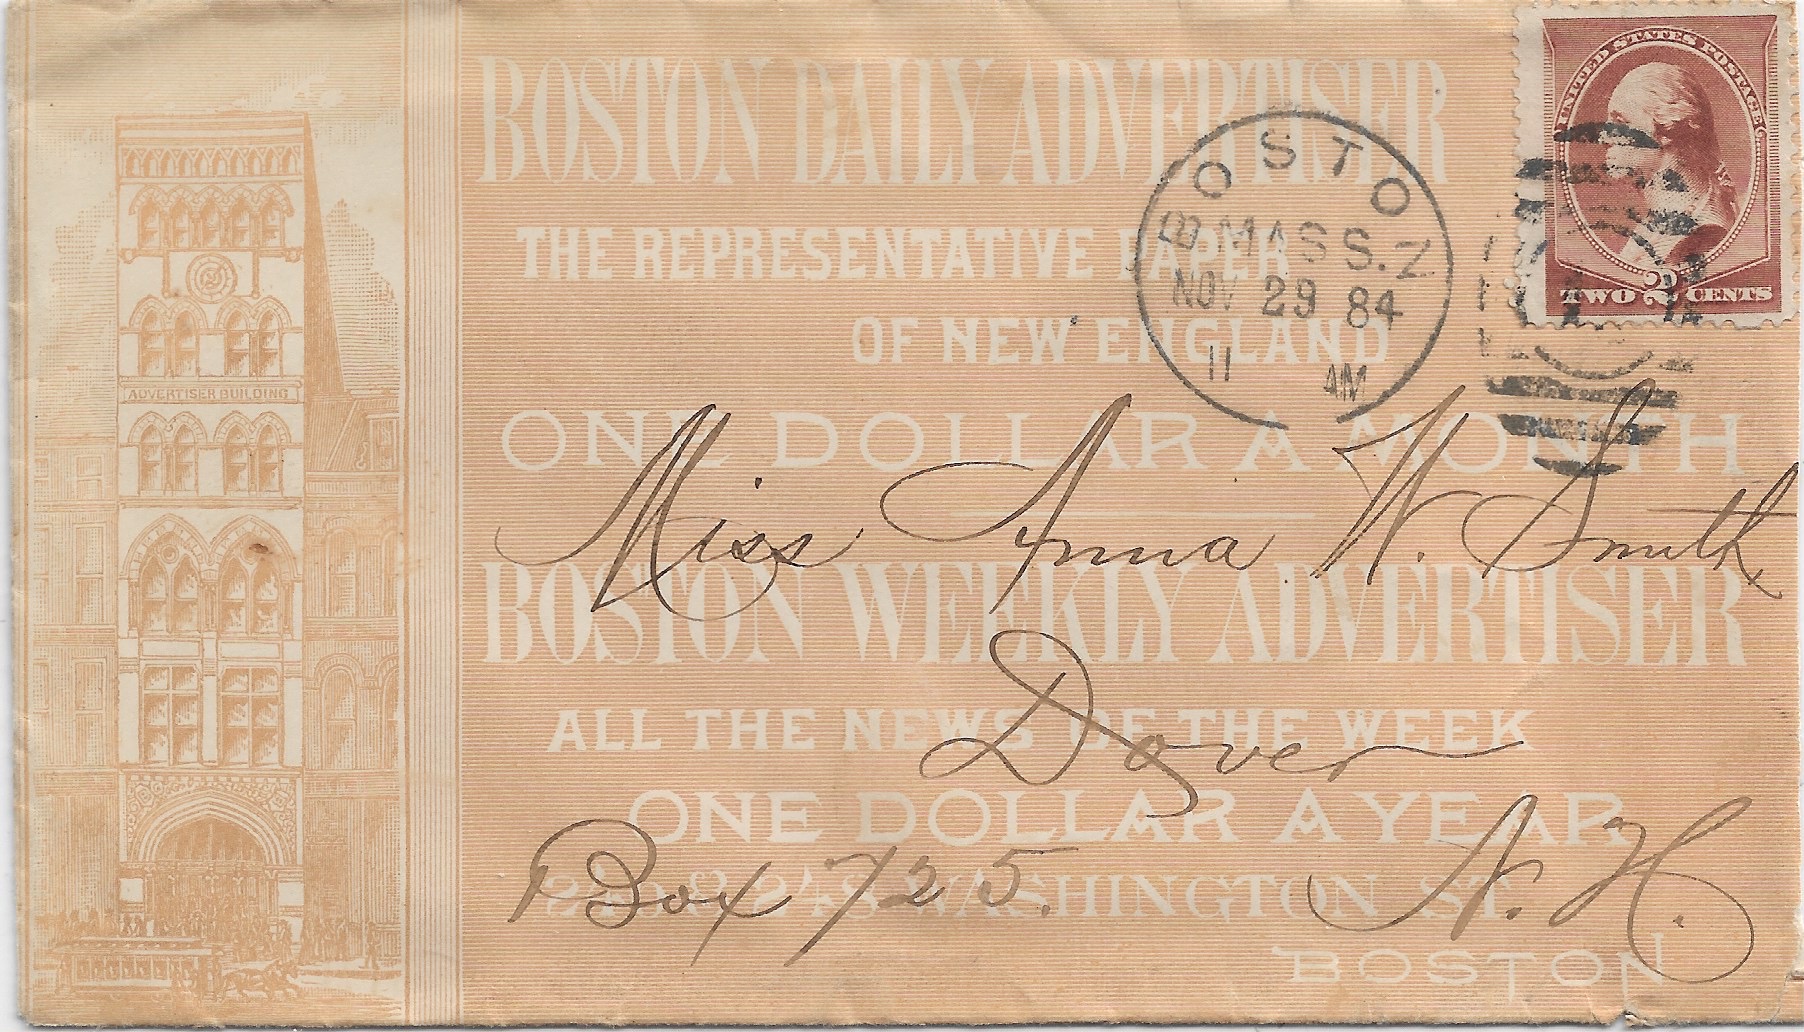 BOSTON DAILY ADVERTISER
THE REPRESENTATIVE PAPER
OF NEW ENGLAND
ONE DOLLAR A MONTH
BOSTON WEEKLY ADVERTISER
ALL THE NEWS OF THE WEEK
ONE DOLLAR A YEAR
248 WASHINGTON ST.
BOSTON
ADVERTISER BUILDING
BOSTON
MASS.
NOV 29 84
11 AM
UNITED STATES POSTAGE
TWO 2 CENTS
Miss Anna W. Smith
Dover
N. H.
Box 725.